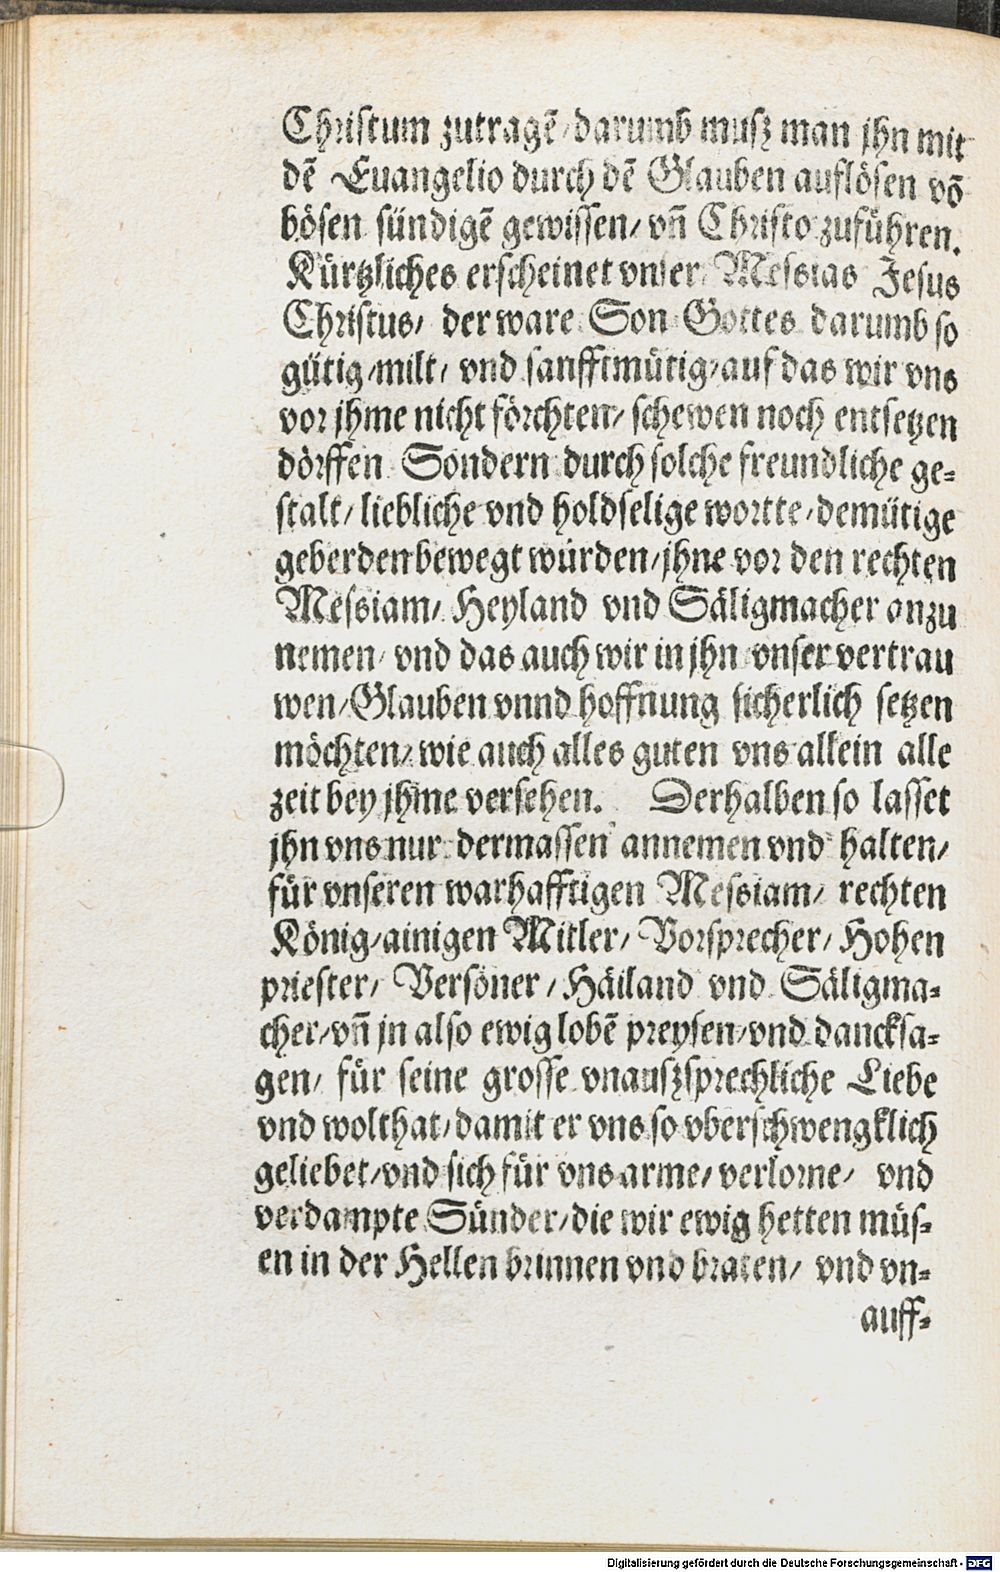 Christum zutragē/darumb musz man jhn mit
dē Euangelio durch dē Glauben auflösen vō
bösen sündigē gewissen/ vñ Christo zuführen.
Kürtzliches erscheinet vnser Messias Jesus
Christus/ der ware Son Gottes darumb so
gütig/milt/ vnd sanfftmütig/auf das wir vns
vor jhme nicht förchten/ schewen noch entsetzen
dörffen Sondern durch solche freundliche ge-
stalt/ liebliche vnd holdselige wortte/demütige
geberden bewegt würden/jhne vor den rechten
Messiam/ Heyland vnd Säligmacher anzu
nemen/ vnd das auch wir in jhn vnser vertrau
wen/Glauben vnnd hoffnung sicherlich setzen
möchten/ wie auch alles guten vns allein alle
zeit bey jhme versehen. Derhalben so lasset
jhn vns nur dermassen annemen vnd halten/
für vnseren warhafftigen Messiam/ rechten
König/ainigen Mitler/ Vorsprecher/ Hohen
priester/ Versöner/ Häiland vnd Säligma-
cher/vñ jn also ewig lobē preysen/vnd dancksa-
gen/ für seine grosse vnauszsprechliche Liebe
vnd wolthat/damit er vns so vberschwengklich
geliebet/vnd sich für vns arme/ verlorne/ vnd
verdampte Sünder/die wir ewig hetten müs-
en in der Hellen brinnen vnd braten/ vnd vn-
auff-
Digitalisierung gefördert durch die Deutsche Forschungsgemeinschaft - DFG